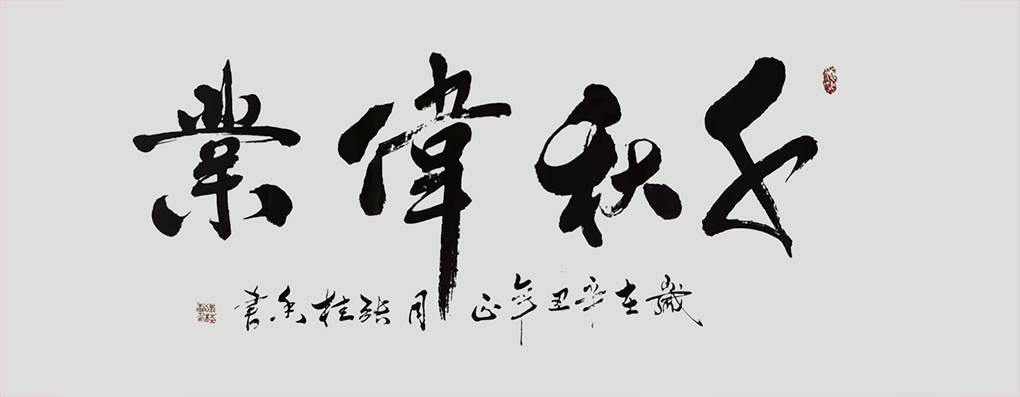 千秋偉業
歲在辛丑年正月張桂香書